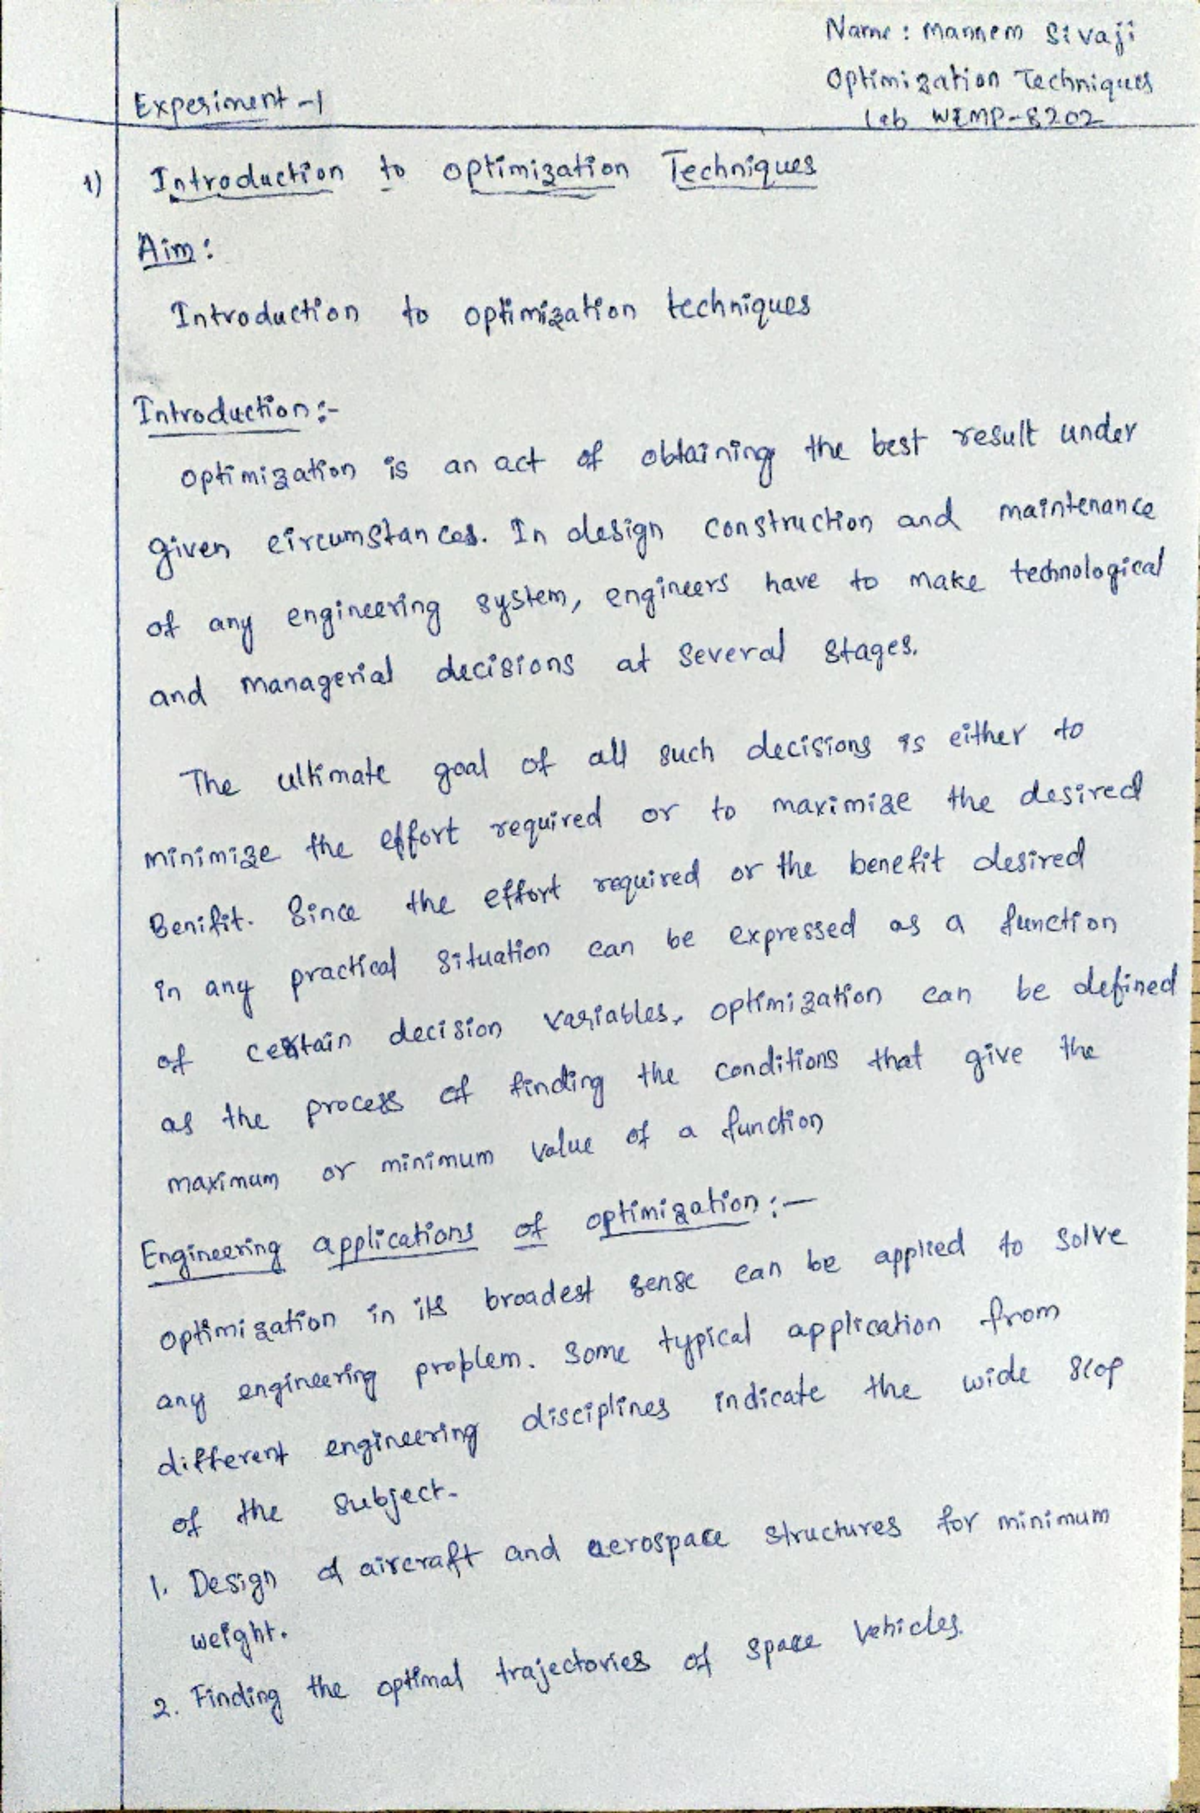 Name: Mannem Sivaji
Optimization Techniques
Lab WEMP-8202
Experiment-1
1) Introduction to optimization Techniques
Aim:
Introduction to optimization techniques
Introduction:-
optimization is an act of obtaining the best result under
given circumstances. In design construction and maintenance
of any engineering system, engineers have to make technological
and managerial decisions at several stages.
The ultimate goal of all such decisions is either to
minimize the effort required or to maximize the desired
Benifit. Since the effort required or the benefit desired
in any practical situation can be expressed as a function
of certain decision variables, optimization can be defined
as the process of finding the conditions that give the
maximum or minimum value of a function
Engineering applications of optimization:-
optimization in its broadest sense can be applied to solve
any engineering problem. Some typical application from
different engineering disciplines indicate the wide scop
of the subject.
1. Design of aircraft and aerospace structures for minimum
weight.
2. Finding the optimal trajectories of space vehicles.